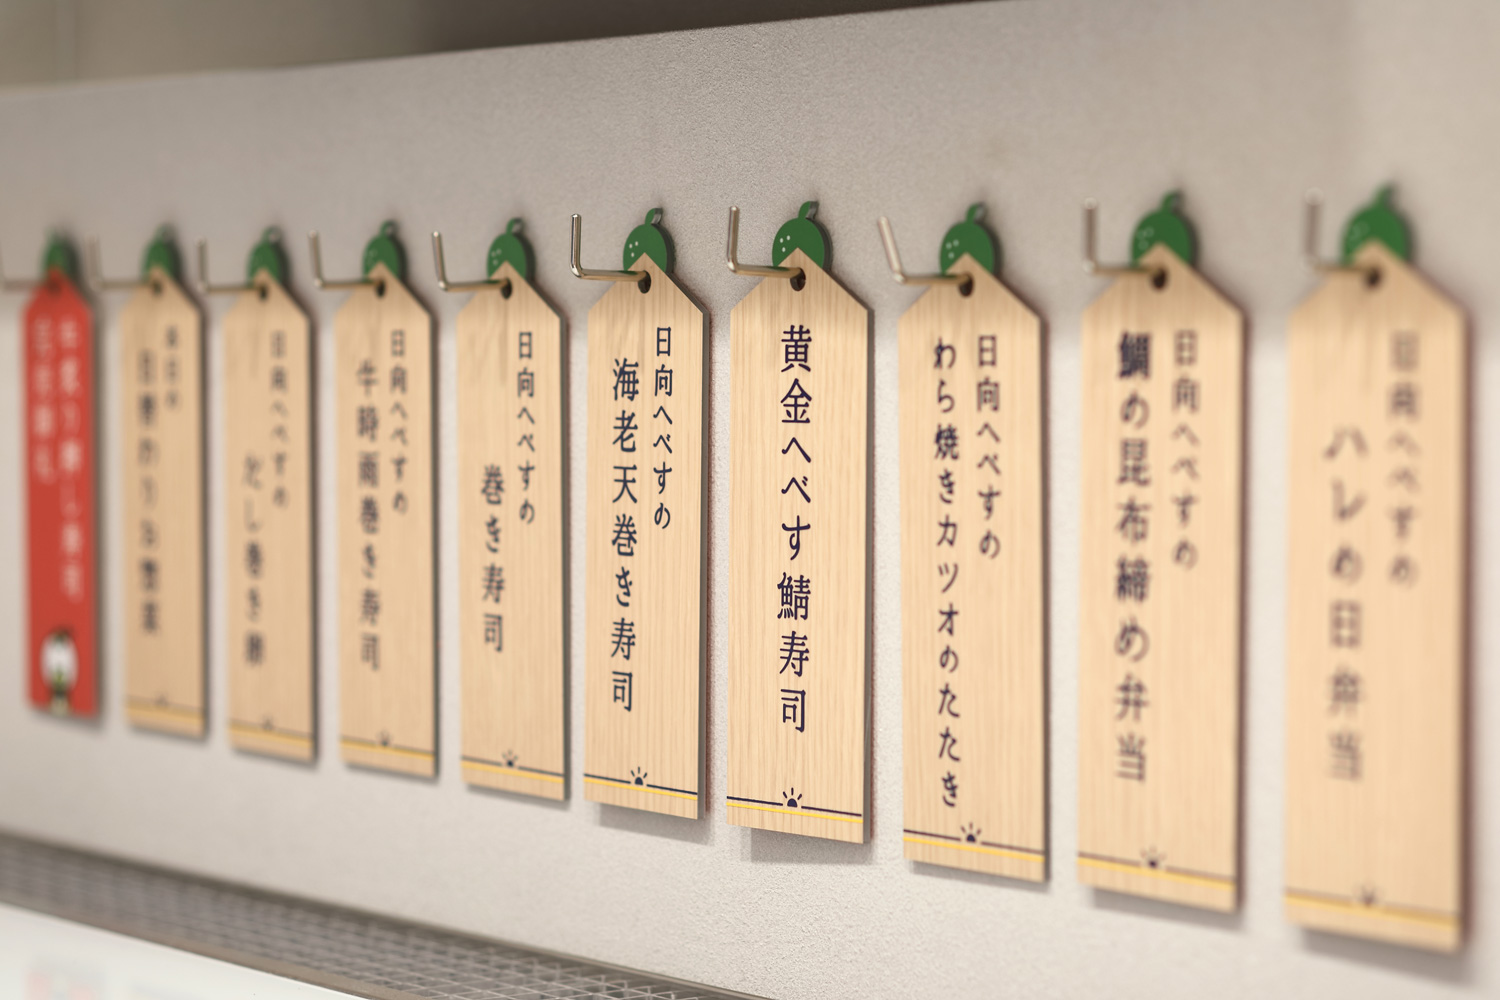 日向へべすの
ハレの日弁当
日向へべすの
鯛の昆布締め弁当
日向へべすの
わら焼きカツオのたたき
黄金へべす鯖寿司
日向へべすの
海老天巻き寿司
日向へべすの
巻き寿司
日向へべすの
牛時雨巻き寿司
日向へべすの